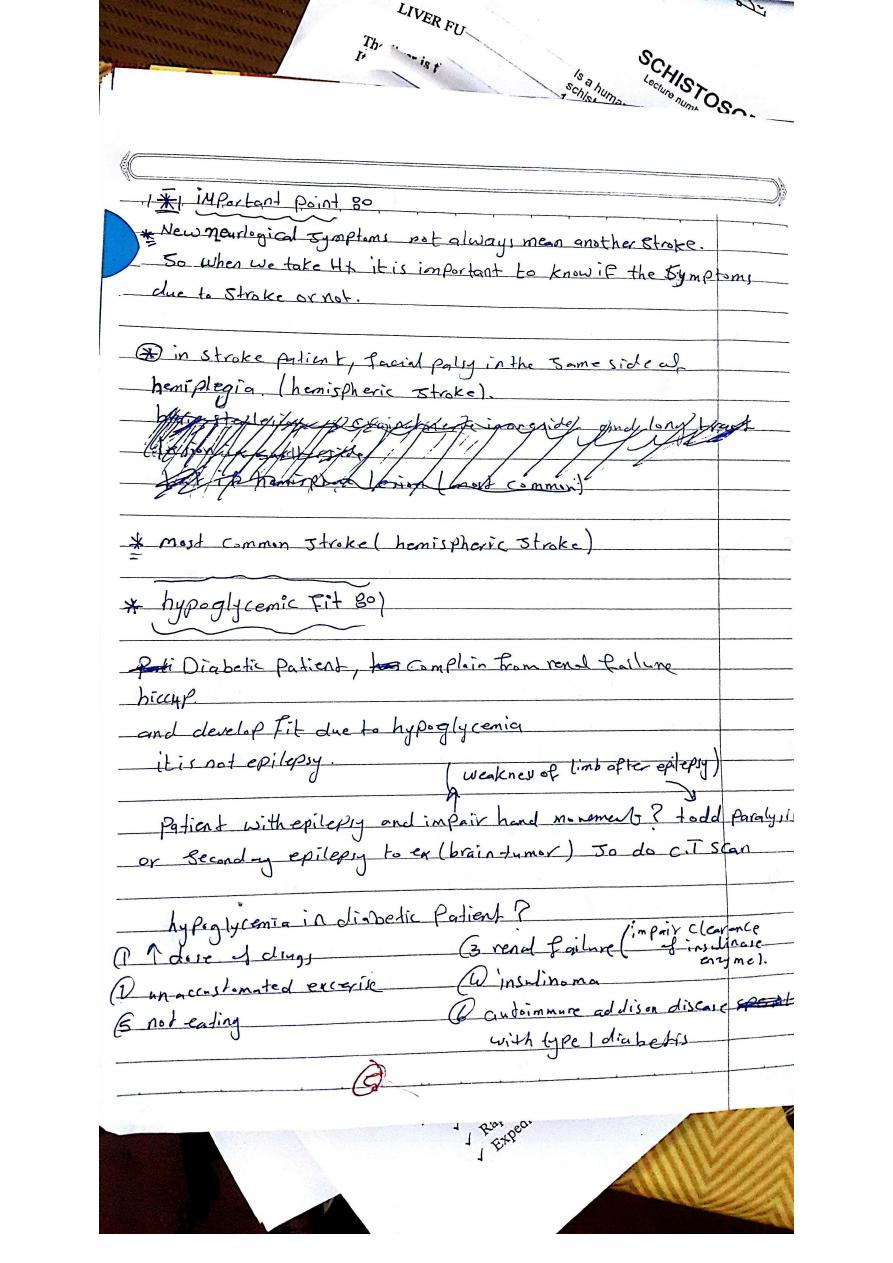 LIVER FU
is t
Is a huma
schist
SCHISTOSO
Lecture num
* important point 80
* New neurlogical symptoms not always mean another stroke.
So when we take Hx it is important to know if the symptoms
due to stroke or not.
* in stroke patient, facial palsy in the same side of
hemiplegia. (hemispheric stroke).
lesion (most common)
* most common stroke (hemispheric stroke)
* hypoglycemic Fit 80)
Diabetic patient, complain from renal failure
hiccup.
and develop fit due to hypoglycemia
it is not epilepsy.
(weakness of limb after epilepsy)
patient with epilepsy and impair hand movement? todd paralysis
or secondary epilepsy to ex (brain tumor) So do C.T scan
hypoglycemia in diabetic patient?
① ↑ dose of drugs
③ renal failure (impair clearance
of insulinase
enzyme).
un accustomated excerise
④ insulinoma
⑤ not eating
⑥ autoimmune addison disease
with type 1 diabetis
√ Rap
√ Exped
√